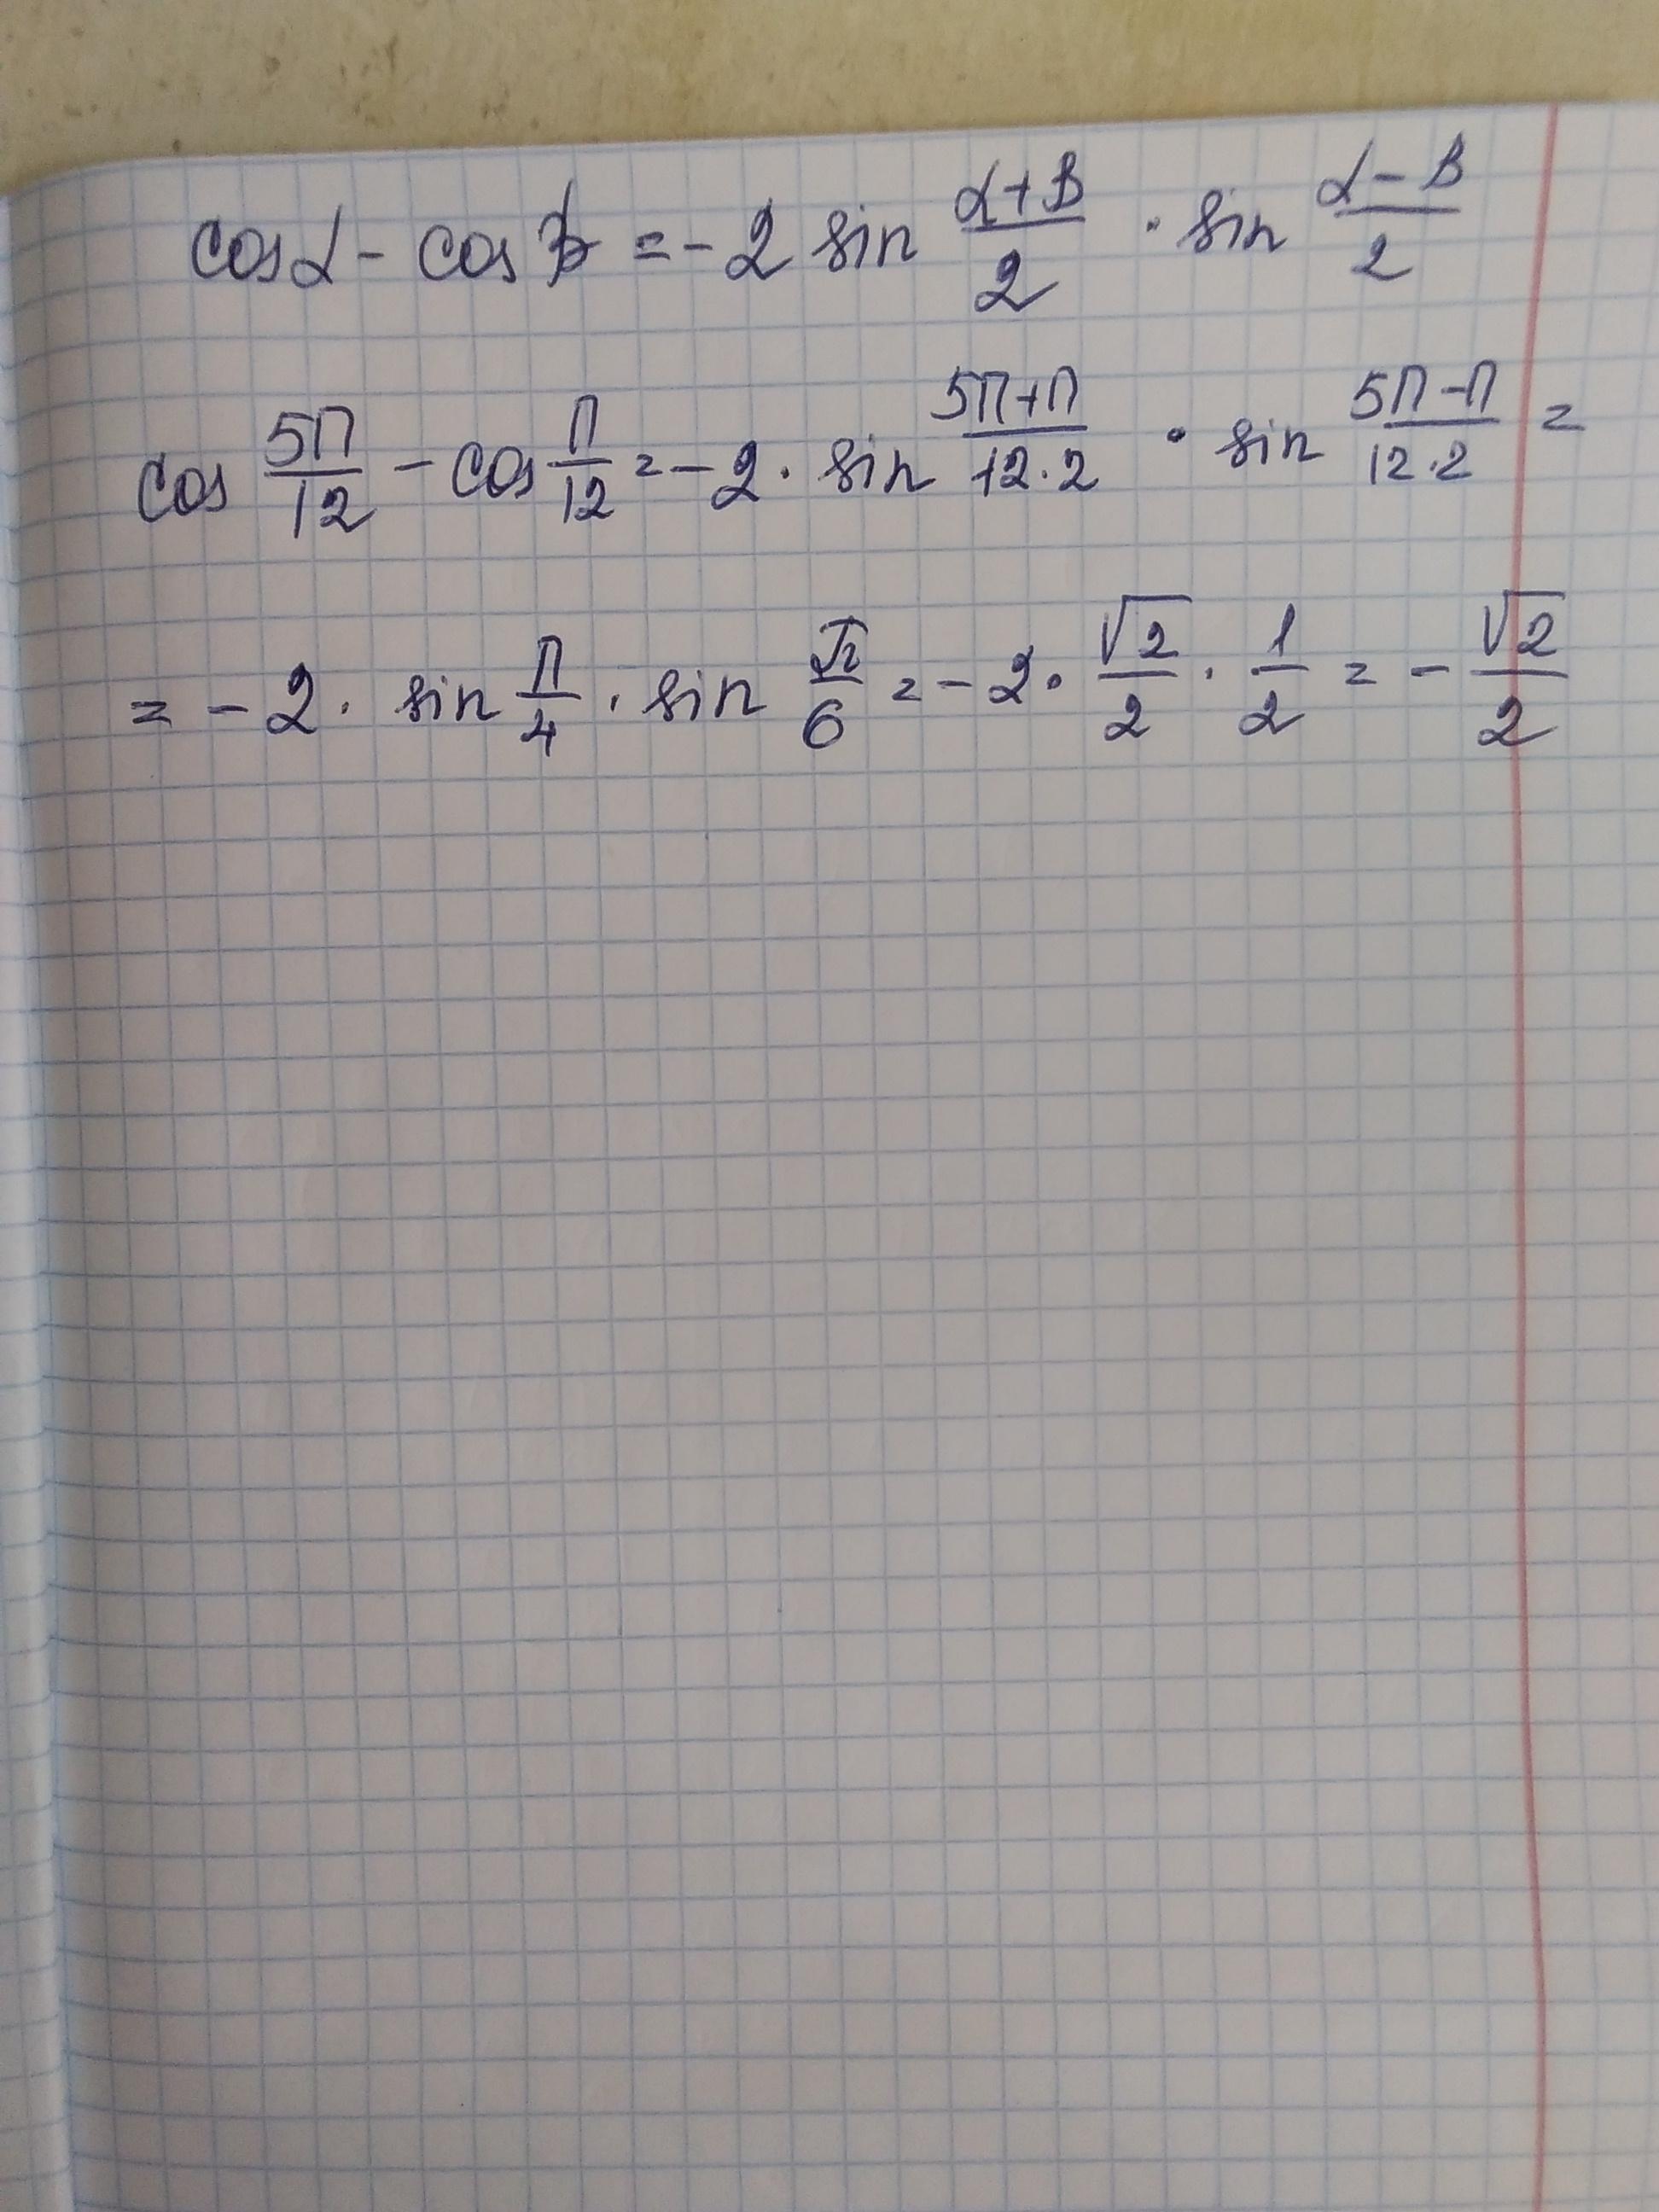 cos α - cos β = -2 sin (α+β)/2 · sin (α-β)/2
cos 5π/12 - cos π/12 = -2 · sin (5π+π)/(12·2) · sin (5π-π)/(12·2) =
= -2 · sin π/4 · sin π/6 = -2 · √2/2 · 1/2 = -√2/2